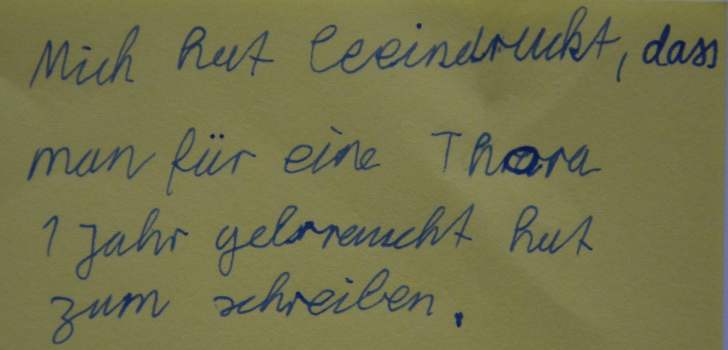 Mich hat beeindruckt, dass
man für eine Thora
1 Jahr gebrauscht hat
zum schreiben.